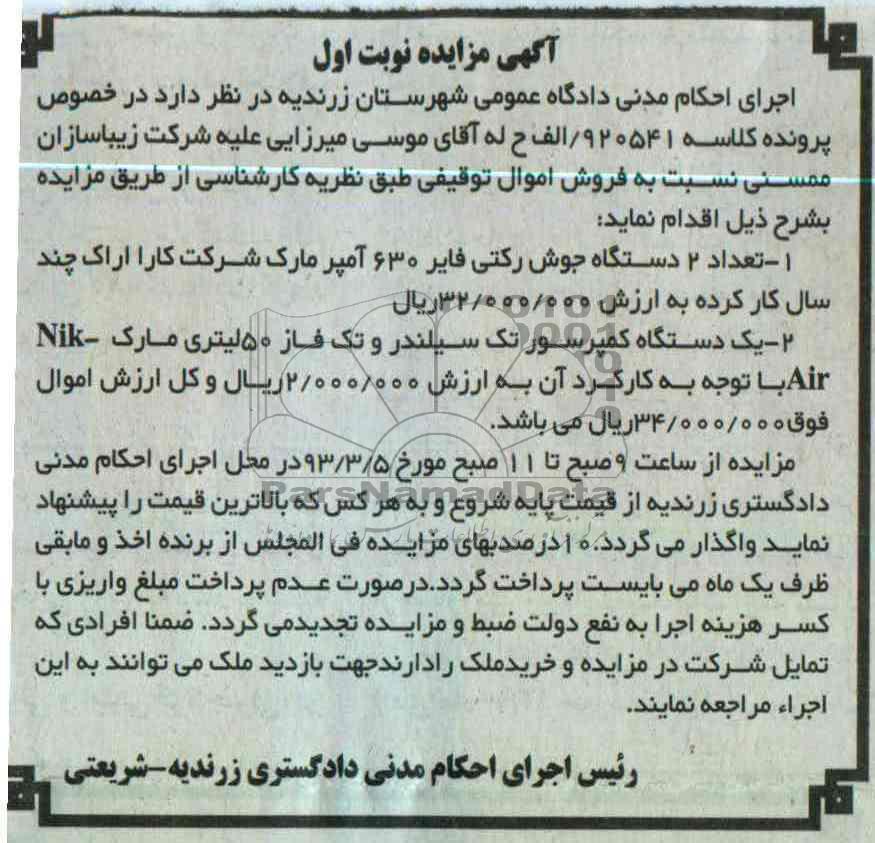 آگهی مزایده نوبت اول
اجرای احکام مدنی دادگاه عمومی شهرستان زرندیه در نظر دارد در خصوص
پرونده کلاسه ۹۲۰۵۴۱/الف ح له آقای موسی میرزایی علیه شرکت زیباسازان
ممسنی نسبت به فروش اموال توقیفی طبق نظریه کارشناسی از طریق مزایده
بشرح ذیل اقدام نماید:
۱-تعداد ۲ دستگاه جوش رکتی فایر ۶۳۰ آمپر مارک شرکت کارا اراک چند
سال کار کرده به ارزش ۳۲/۰۰۰/۰۰۰ریال
۲-یک دستگاه کمپرسور تک سیلندر و تک فاز ۵۰لیتری مارک Nik-
Airبا توجه به کارکرد آن به ارزش ۲/۰۰۰/۰۰۰ریال و کل ارزش اموال
فوق۳۴/۰۰۰/۰۰۰ریال می باشد.
مزایده از ساعت ۹صبح تا ۱۱ صبح مورخ ۹۳/۳/۵در محل اجرای احکام مدنی
دادگستری زرندیه از قیمت پایه شروع و به هر کس که بالاترین قیمت را پیشنهاد
نماید واگذار می گردد.۱۰درصدبهای مزایده فی المجلس از برنده اخذ و مابقی
ظرف یک ماه می بایست پرداخت گردد.درصورت عدم پرداخت مبلغ واریزی با
کسر هزینه اجرا به نفع دولت ضبط و مزایده تجدیدمی گردد. ضمنا افرادی که
تمایل شرکت در مزایده و خریدملک رادارندجهت بازدید ملک می توانند به این
اجراء مراجعه نمایند.
رئیس اجرای احکام مدنی دادگستری زرندیه-شریعتی
ParsNamadData